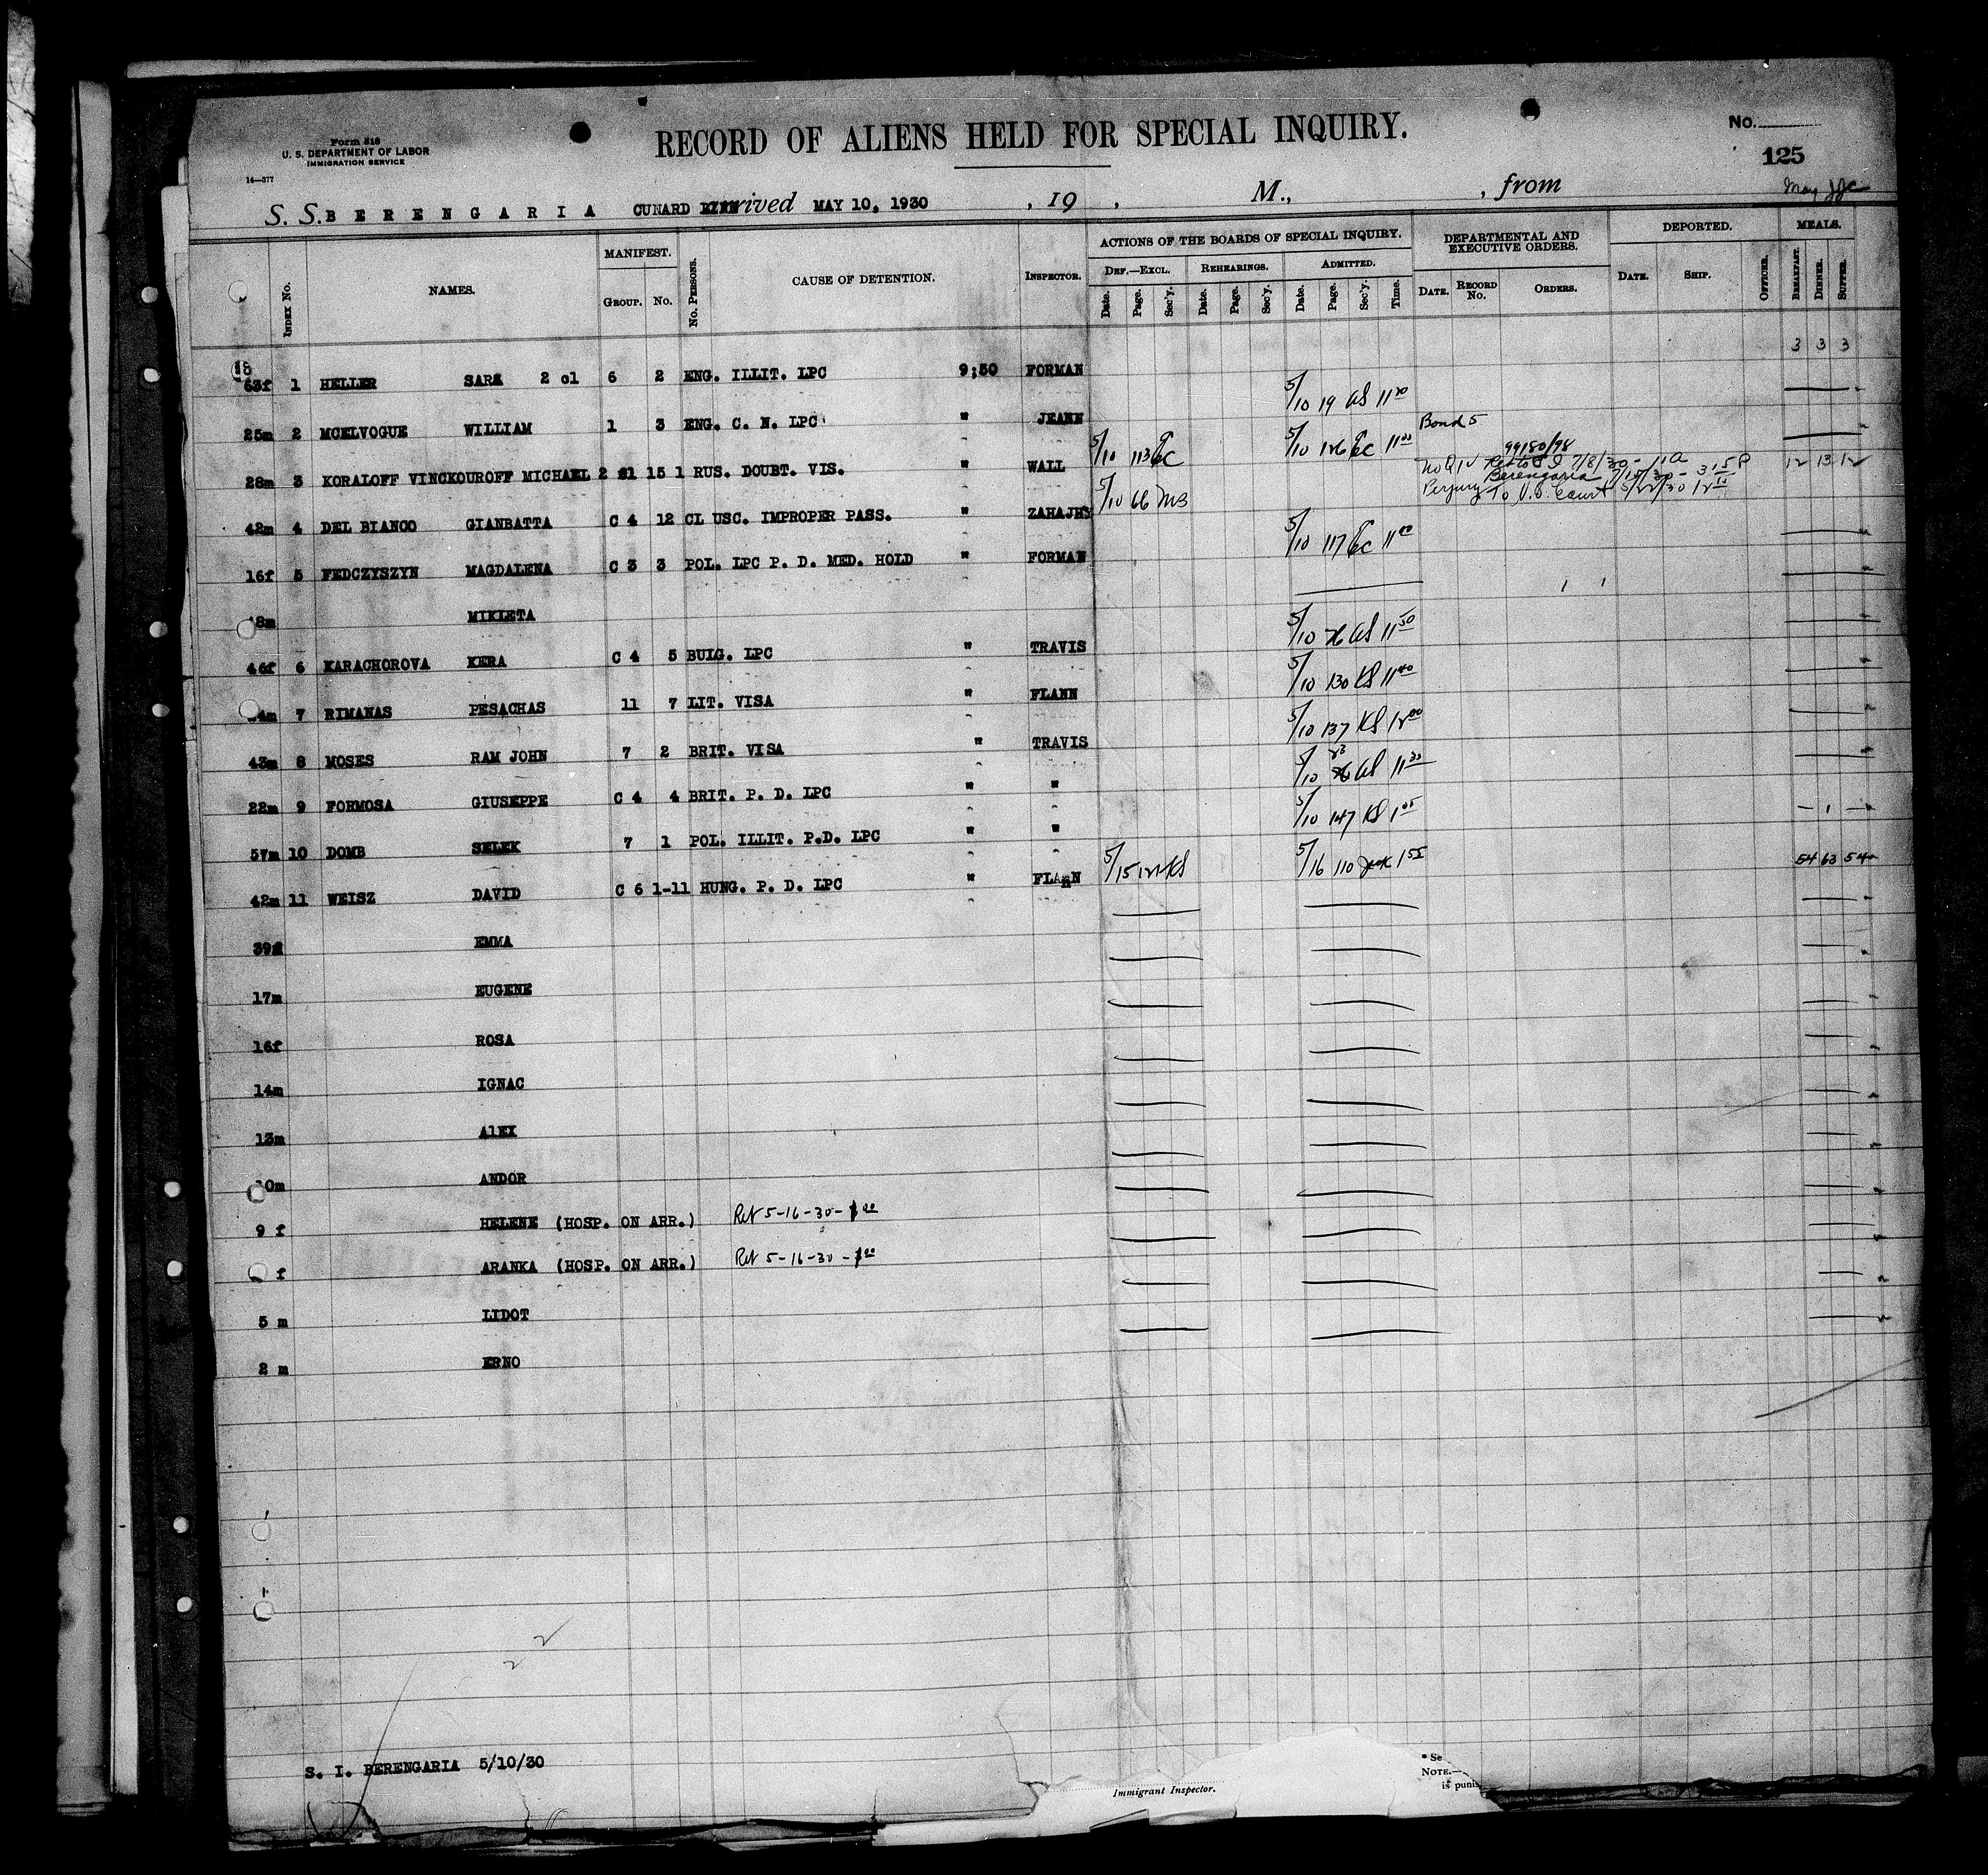 Form 518
U. S. DEPARTMENT OF LABOR
IMMIGRATION SERVICE
14—377
RECORD OF ALIENS HELD FOR SPECIAL INQUIRY.
No.
125
S. S. BERENGARIA CUNARD LINE arrived MAY 10, 1930 , 19 , M., , from
INDEX No. NAMES. MANIFEST. GROUP. No. No. PERSONS. CAUSE OF DETENTION. INSPECTOR. ACTIONS OF THE BOARDS OF SPECIAL INQUIRY. DEF.—EXCL. Date. Page. Sec'y. REHEARINGS. Date. Page. Sec'y. ADMITTED. Date. Page. Sec'y. Time. DEPARTMENTAL AND EXECUTIVE ORDERS. DATE. RECORD No. ORDERS. DEPORTED. DATE. SHIP. OFFICER. MEALS. BREAKFAST. DINNER. SUPPER.
18
3 3 3
63f 1 HELLER SARA 2 cl 6 2 ENG. ILLIT. LPC 9;30 FORMAN 5/10 19 AS 11 20
25m 2 MCELVOGUE WILLIAM 1 3 ENG. C. N. LPC " JEANN 5/10 113 EC 5/10 126 EC 11 00 Bond 5
28m 3 KORALOFF VINCKOUROFF MICHAEL 2 cl 15 1 RUS. DOUBT. VIS. " WALL 5/10 66 MS 99180/98 No QIV Ret to S I 7/8/30 - 11 A Berengaria 7/15/30 - 3 15 P Perjury To U.S. Court 5/22/30 12 10 12 13 12
42m 4 DEL BIANCO GIANBATTA C 4 12 CL USC. IMPROPER PASS. " ZAHAJHY 5/10 117 EC 11 00
16f 5 FEDCZYSZYN MAGDALENA C 3 3 POL. LPC P. D. MED. HOLD " FORMAN
18m MIKLETA
46f 6 KARACHOROVA KERA C 4 5 BULG. LPC " TRAVIS 5/10 76 AS 11 50
7 RIMANAS PESACHAS 11 7 LIT. VISA " FLANN 5/10 130 KS 11 40
43m 8 MOSES RAM JOHN 7 2 BRIT. VISA " TRAVIS 5/10 137 KS 12 00
22m 9 FORMOSA GIUSEPPE C 4 4 BRIT. P. D. LPC " " 5/10 23 AS 11 30
57m 10 DOMB SELEK 7 1 POL. ILLIT. P.D. LPC " " 5/10 147 KS 1 05 — 1 —
42m 11 WEISZ DAVID C 6 1-11 HUNG. P. D. LPC " FLANN 5/15 121 KS 5/16 110 1 55 54 63 54
39f EMMA
17m EUGENE
16f ROSA
14m IGNAC
13m AlEX
10m ANDOR
9 f HELENE (HOSP. ON ARR.) Ret 5-16-30- 1 00
f ARANKA (HOSP. ON ARR.) Ret 5-16-30 - 1 00
5 m LIDOT
2 m ERNO
S. I. BERENGARIA 5/10/30
Immigrant Inspector.
* Se
NOTE.—
is punis